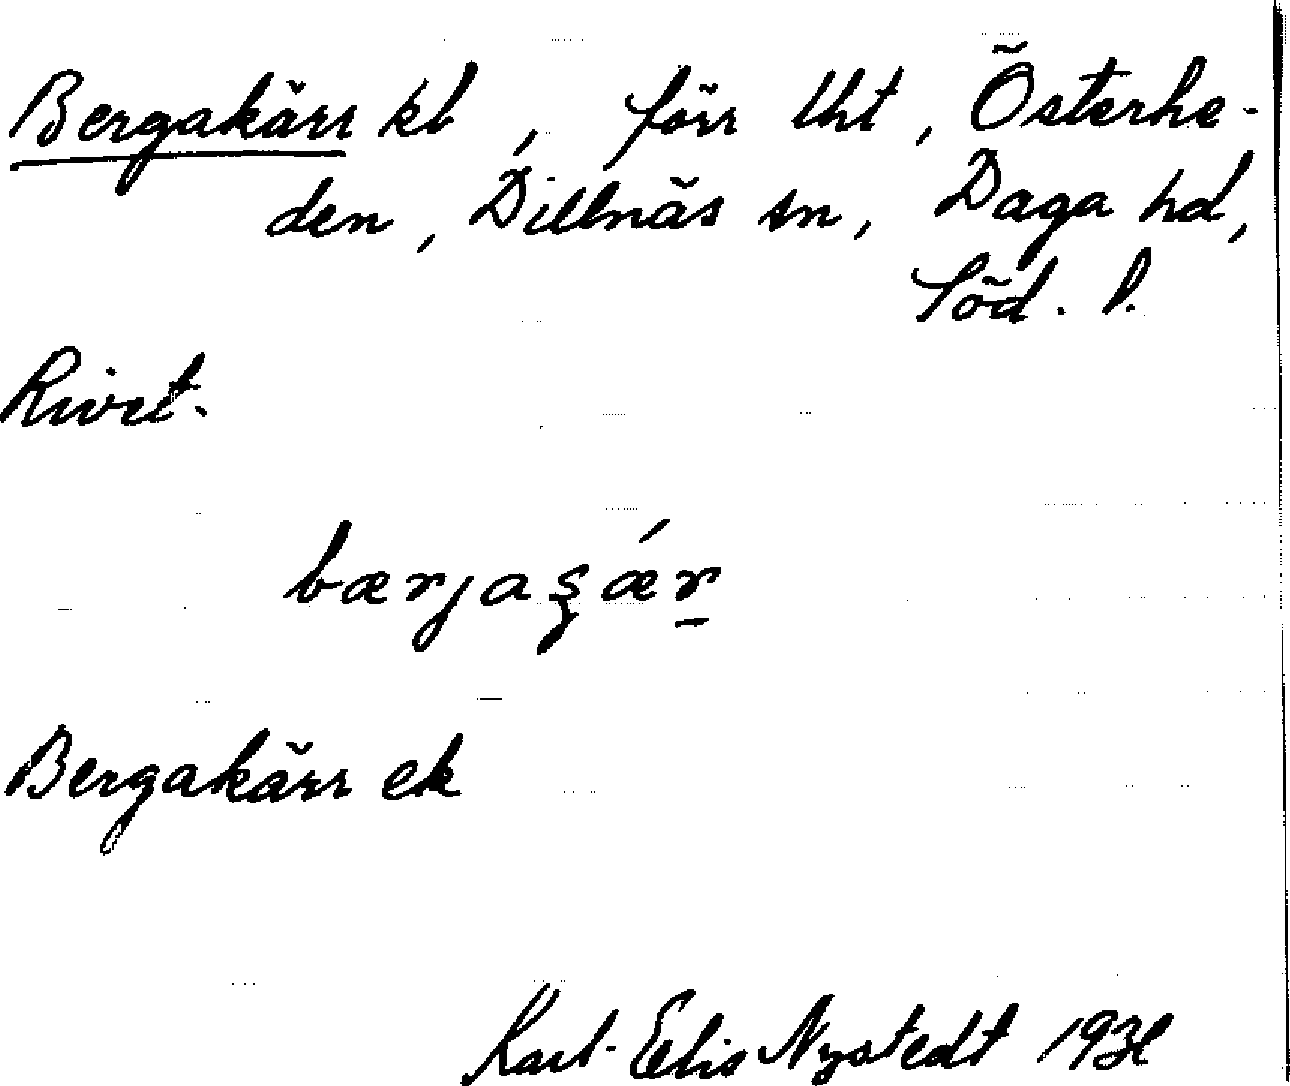 Bergakärr kl, förr lht, Österhe-
den, Dillnäs sn, Daga hd,
Söd. l.
Rivet.
bærjaʂǽr
Bergakärr ek
Karl-Elis Nystedt